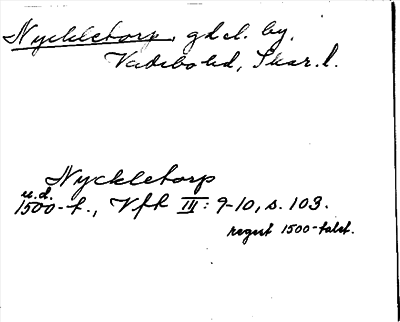 Nyckletorp, gdel. by.
Vadsbo hd, Skar. l.
Nyckletorp
u.d.
1500-t., Vfk III: 9-10, s. 103.
regest 1500-talet.